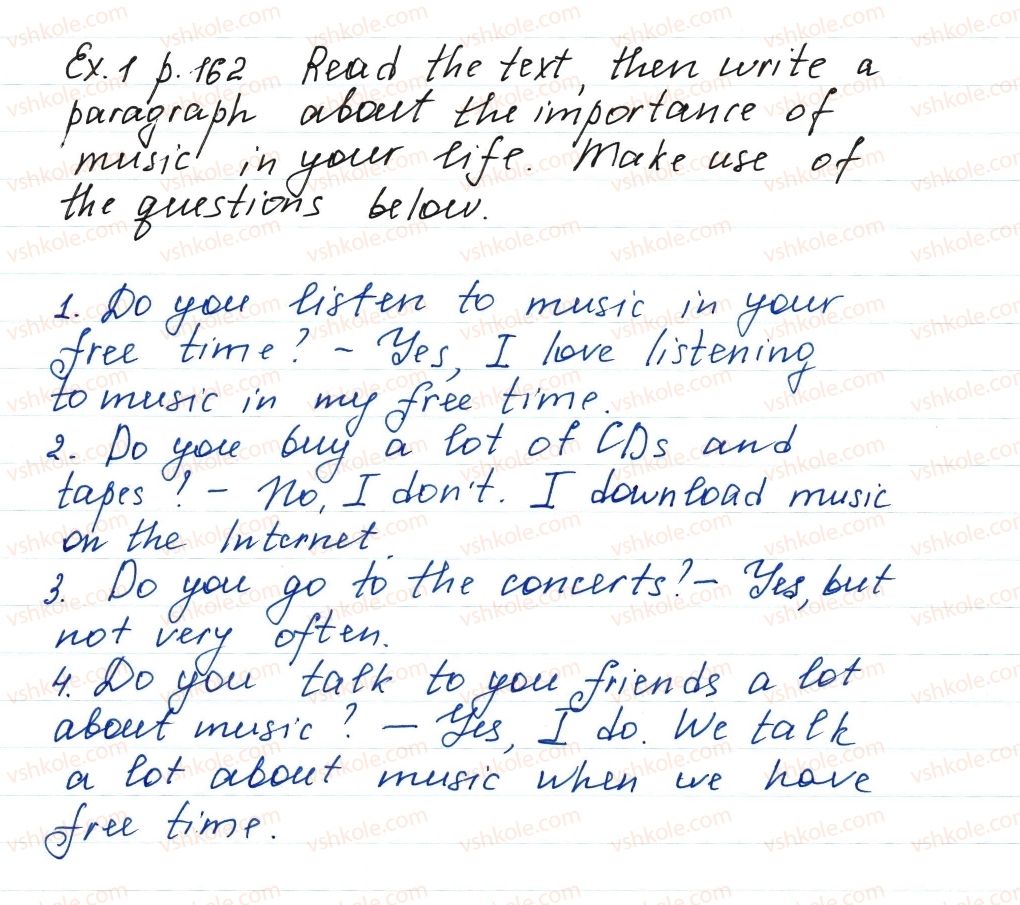 Ex. 1 p. 162 Read the text, then write a
paragraph about the importance of
music in your life. Make use of
the questions below.
1. Do you listen to music in your
free time? – Yes, I love listening
to music in my free time.
2. Do you buy a lot of CDs and
tapes? – No, I don't. I download music
on the Internet.
3. Do you go to the concerts? – Yes, but
not very often.
4. Do you talk to you friends a lot
about music? – Yes, I do. We talk
a lot about music when we have
free time.